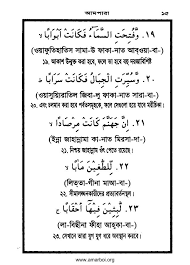 আমপারা ১৫
١٩. وَّفُتِحَتِ السَّمَآءُ فَكَانَتْ اَبْوَابًا ۙ
(ওয়াফুতিহাতিস সামা-উ ফাকা-নাত আব্ওয়া-বা-)
১৯. আকাশ উন্মুক্ত করা হবে, ফলে তা হবে বহু দরজাবিশিষ্ট
٢٠. وَّسُيِّرَتِ الْجِبَالُ فَكَانَتْ سَرَابًا ؕ
(ওয়াসুয়্যিরাতিল জিবা-লু ফাকা-নাত সারা-বা-)
২০. এবং চলমান করা হবে পর্বতসমূহকে, ফলে সেগুলো হয়ে যাবে মরীচিকা।
٢١. اِنَّ جَهَنَّمَ كَانَتْ مِرْصَادًا ۙ
(ইন্না জাহান্নামা কা-নাত মিরসা-দা-)
২১. নিশ্চয় জাহান্নাম ওঁৎ পেতে রয়েছে।
٢٢. لِّلطّٰغِيْنَ مَاٰبًا ۙ
(লিত্ত্বা-গীনা মাআ-বা-)
২২. সীমালঙ্ঘনকারীদের প্রত্যাবর্তনস্থল।
٢٣. لّٰبِثِيْنَ فِيْهَاۤ اَحْقَابًا ۚ
(লা-বিছীনা ফীহা আহ্ক্বা-বা-)
২৩. সেখানে তারা যুগ যুগ ধরে অবস্থান করবে।
www.amarboi.org